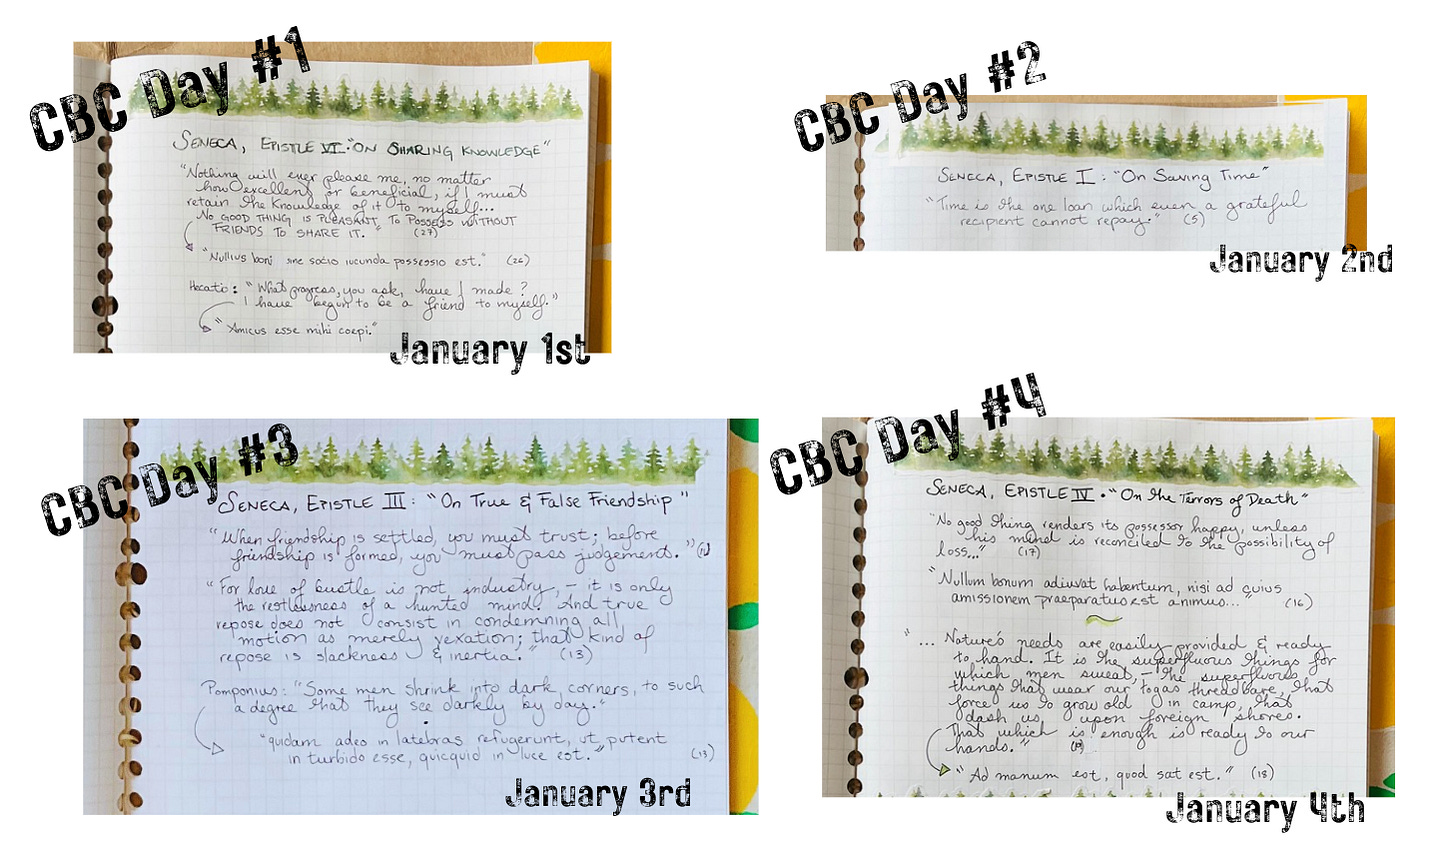 CBC Day #1
SENECA, EPISTLE VI: "ON SHARING KNOWLEDGE"
"Nothing will ever please me, no matter
how excellent or beneficial, if I must
retain the knowledge of it to myself...
NO GOOD THING IS PLEASANT TO POSSESS WITHOUT
FRIENDS TO SHARE IT." (27)
"Nullius boni sine socio iucunda possessio est." (26)
Hecato: "What progress, you ask, have I made?
I have begun to be a friend to myself."
"Amicus esse mihi coepi."
January 1st
CBC Day #2
SENECA, EPISTLE I: "On Saving Time"
"Time is the one loan which even a grateful
recipient cannot repay." (5)
January 2nd
CBC Day #3
SENECA, EPISTLE III: "On True & False Friendship"
"When friendship is settled, you must trust; before
friendship is formed, you must pass judgement."
"For love of bustle is not industry, - it is only
the restlessness of a hunted mind. And true
repose does not consist in condemning all
motion as merely vexation; that kind of
repose is slackness & inertia." (13)
Pomponius: "Some men shrink into dark corners, to such
a degree that they see darkly by day."
"quidam adeo in latebras refugerunt, ut putent
in turbido esse, quicquid in luce est." (13)
January 3rd
CBC Day #4
SENECA, EPISTLE IV • "On the Terrors of Death"
"No good thing renders its possessor happy, unless
his mind is reconciled to the possibility of
loss..." (17)
"Nullum bonum adiuvat habentum, nisi ad cuius
amissionem praeparatus est animus..." (16)
"... Nature's needs are easily provided & ready
to hand. It is the superfluous things for
which men sweat, - the superfluous
things that wear our togas threadbare, that
force us to grow old in camp, that
dash us upon foreign shores.
That which is enough is ready to our
hands."
"Ad manum est, quod sat est." (18)
January 4th